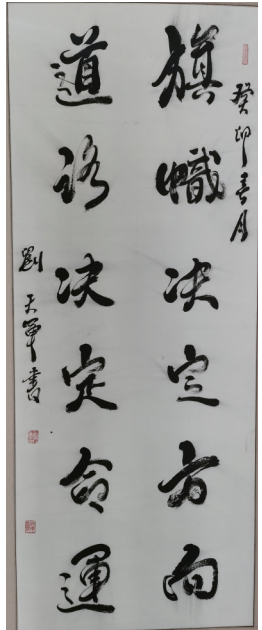 癸卯春月
旗幟决定方向
道路决定命運
劉天軍書